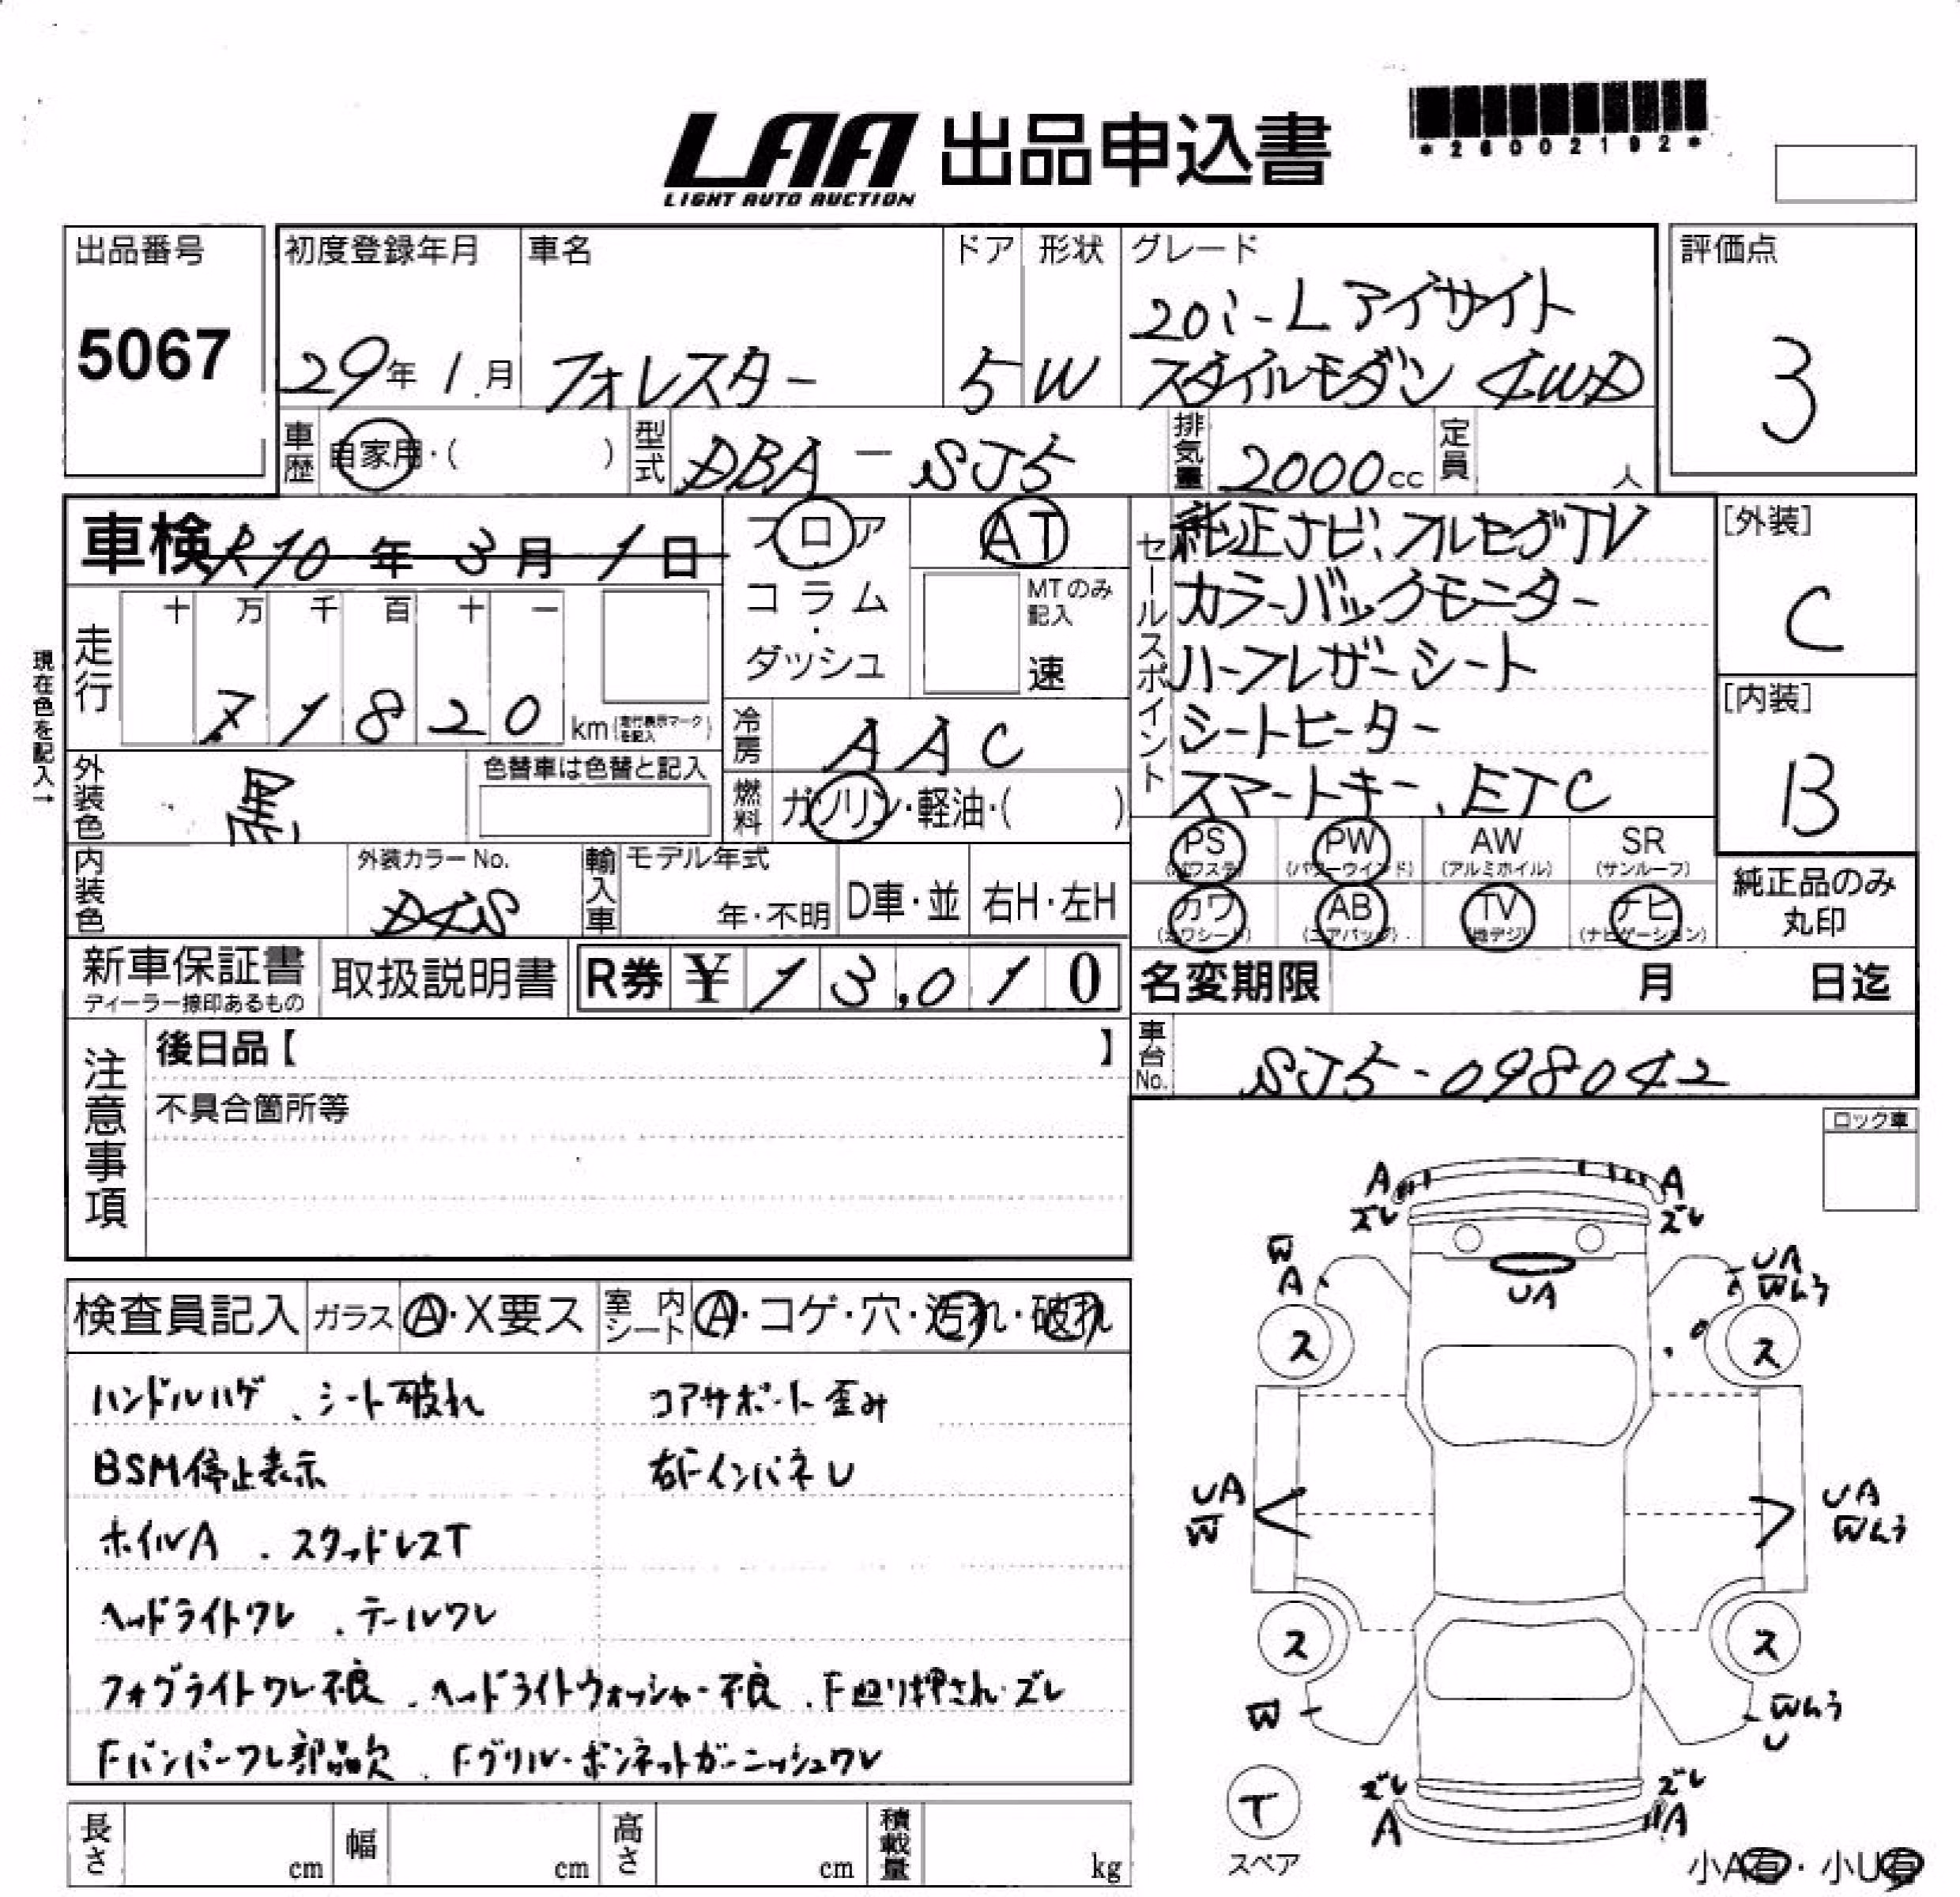 LAA 出品申込書
LIGHT AUTO AUCTION
*26002192*
出品番号
5067
初度登録年月
29年 1月
車名
フォレスター
ドア
5
形状
W
グレード
20i-Lアイサイト
スタイルモダン 4WD
評価点
3
車歴 自家用・( )
型式 DBA-SJ5
排気量 2000cc
定員 人
車検 R10年 3月 1日
フロア
コラム
・
ダッシュ
AT
MTのみ
記入
速
セールスポイント
純正ナビ、フルセグTV
カラーバックモニター
ハーフレザーシート
シートヒーター
スマートキー、ETC
[外装]
C
[内装]
B
現在色を記入→
走行
十 万 千 百 十 一
7 1 8 2 0 km(走行表示マークを記入)
冷房 AAC
燃料 ガソリン・軽油・( )
外装色 黒
色替車は色替と記入
PS (パワステ)
PW (パワーウインド)
AW (アルミホイル)
SR (サンルーフ)
カワ (カワシート)
AB (エアバッグ)
TV (地デジ)
ナビ (ナビゲーション)
純正品のみ
丸印
内装色
外装カラーNo.
D4S
輸入車
モデル年式
年・不明
D車・並
右H・左H
新車保証書
ディーラー捺印あるもの
取扱説明書
R券 ¥13,010
名変期限 月 日迄
車台No. SJ5-098042
注意事項
後日品【 】
不具合箇所等
ロック車
検査員記入
ガラス A・X要ス
室内シート A・コゲ・穴・汚れ・破れ
ハンドルハゲ、シート破れ
コアサポート歪み
BSM停止表示
右FインパネU
ホイルA、スタッドレスT
ヘッドライトワレ、テールワレ
フォグライトワレ不良、ヘッドライトウォッシャー不良、F廻り押され・ズレ
Fバンパーワレ部品欠、Fグリル・ボンネットガーニッシュワレ
A
ズレ
A
ズレ
W
A
UA
UA
Wムラ
ス
ス
UA
W
UA
Wムラ
ス
ス
W
Wムラ
U
ズレ
A
ズレ
A
T
スペア
小A有・小U有
長さ cm
幅 cm
高さ cm
積載量 kg